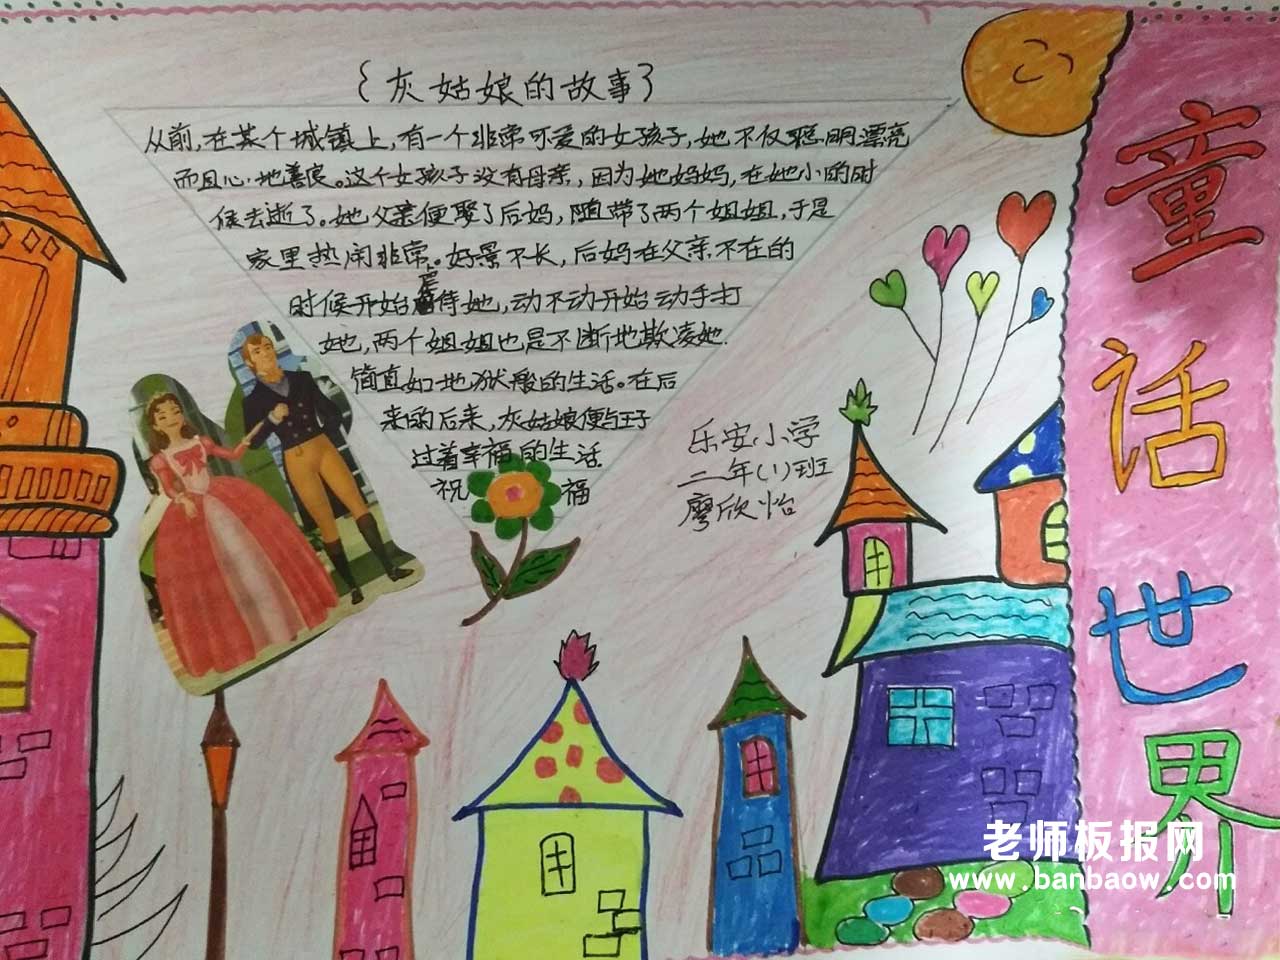 {灰姑娘的故事}
从前,在某个城镇上,有一个非常可爱的女孩子,她不仅聪明漂亮
而且心地善良。这个女孩子没有母亲,因为她妈妈,在她小的时
候去逝了。她父亲便娶了后妈,随带了两个姐姐,于是
家里热闹非常。好景不长,后妈在父亲不在的
时候开始虐待她,动不动开始动手打
她,两个姐姐也是不断地欺凌她.
简直如地狱般的生活。在后
来的后来,灰姑娘便与王子
过着幸福的生活.
祝福
乐安小学
二年(1)班
廖欣怡
童话世界
老师板报网
www.banbaow.com